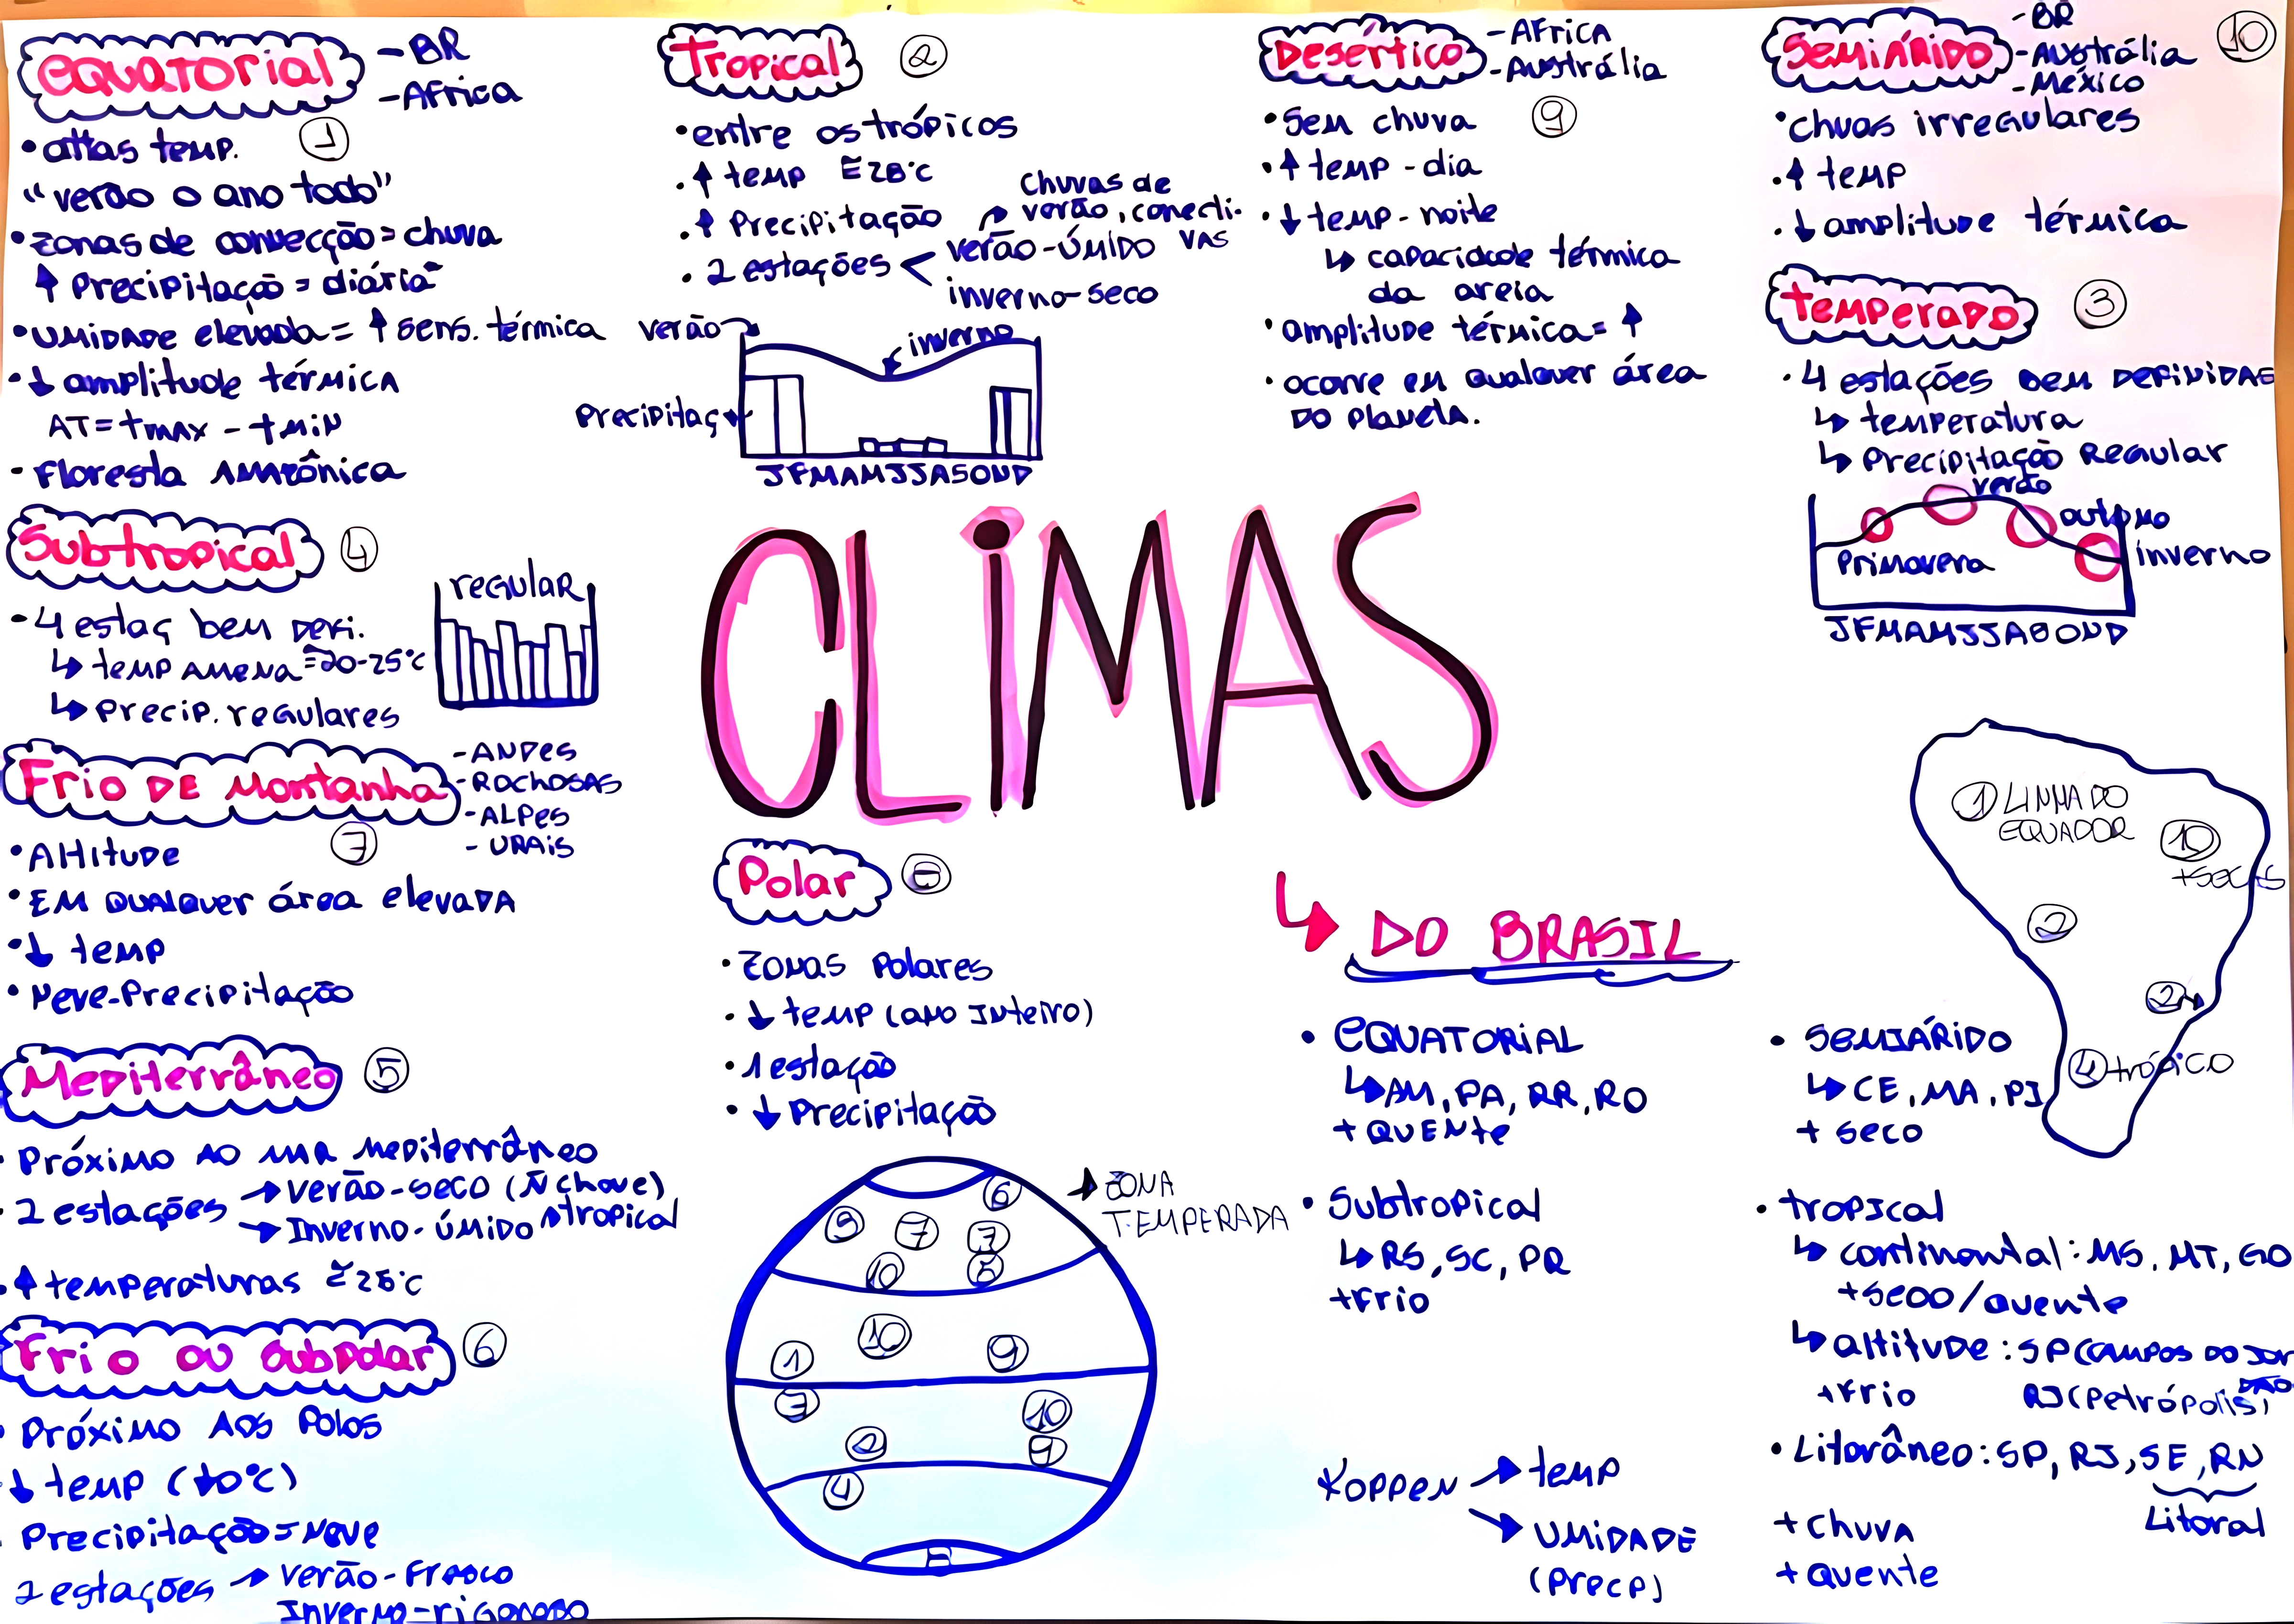 Equatorial
- BR
- Africa
1
• altas temp.
"verão o ano todo"
• zonas de convecção = chuva
↑ Precipitação = diária
• umidade elevada = ↑ sens. térmica
• ↓ amplitude térmica
AT = tmax - tmin
- Floresta Amazônica
Subtropical
4
• 4 estaç bem defi.
↳ temp amena ≅ 20-25°C
↳ precip. regulares
regular
Frio de Montanha
- Andes
- Rochosas
- Alpes
- Urais
7
• Altitude
• Em qualquer área elevada
• ↓ temp
• Neve-Precipitação
Mediterrâneo
5
• Próximo ao mar Mediterrâneo
• 2 estações → verão-seco (ñ chove)
→ Inverno-úmido
tropical
• ↑ temperaturas ≅ 28°C
Frio ou subpolar
6
• Próximo aos Polos
↓ temp (
10°C)
Precipitação = Neve
2 estações → verão-fresco
Inverno-rigoroso
Tropical
2
• entre os trópicos
• ↑ temp ≅ 28°C
• ↑ Precipitação
chuvas de
verão, conecti-
vas
• 2 estações < verão-úmido
inverno-seco
verão
inverno
Precipitaç
JFMAMJJASOND
CLIMAS
Polar
8
• Zonas Polares
• ↓ temp (ano inteiro)
• 1 estação
• ↓ Precipitação
→ ZONA
TEMPERADA
6
9
7
7
10
5
10
1
9
7
10
2
9
4
8
Desértico
- Africa
- Austrália
9
• Sem chuva
• ↑ temp - dia
• ↓ temp - noite
↳ capacidade térmica
da areia
• amplitude térmica = ↑
• ocorre em qualquer área
do planeta.
Semiárido
- BR
- Austrália
- México
10
• chuas irregulares
• ↑ temp
• ↓ amplitude térmica
Temperado
3
• 4 estações bem definidas
↳ temperatura
↳ Precipitação Regular
verão
outono
Primavera
inverno
JFMAMJJASOND
↳ DO BRASIL
• Equatorial
↳ AM, PA, RR, RO
+ quente
• Subtropical
↳ RS, SC, PR
+ frio
Koppen → temp
→ umidade
(precp)
1 LINHA DO
EQUADOR
10
+ SECAS
2
2
4 trópico
• Semiárido
↳ CE, MA, PI
+ seco
• Tropical
↳ continental: MS, MT, GO
+ seco/quente
↳ altitude: SP (Campos do Jor
dão
+ frio
RJ (Petrópolis)
• Litorâneo: SP, RJ, SE, RN
Litoral
+ chuva
+ quente